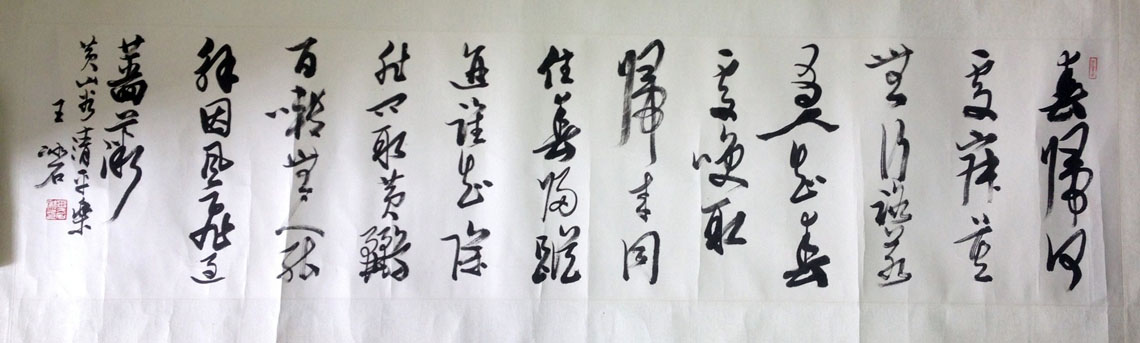 春歸何
處寂莫
無行路若
有人知春
處喚取
歸來同
住春歸蹤
迹誰知除
非問取黃鸝
百囀無人能
解因風飛過
薔薇
黃山谷清平樂
王